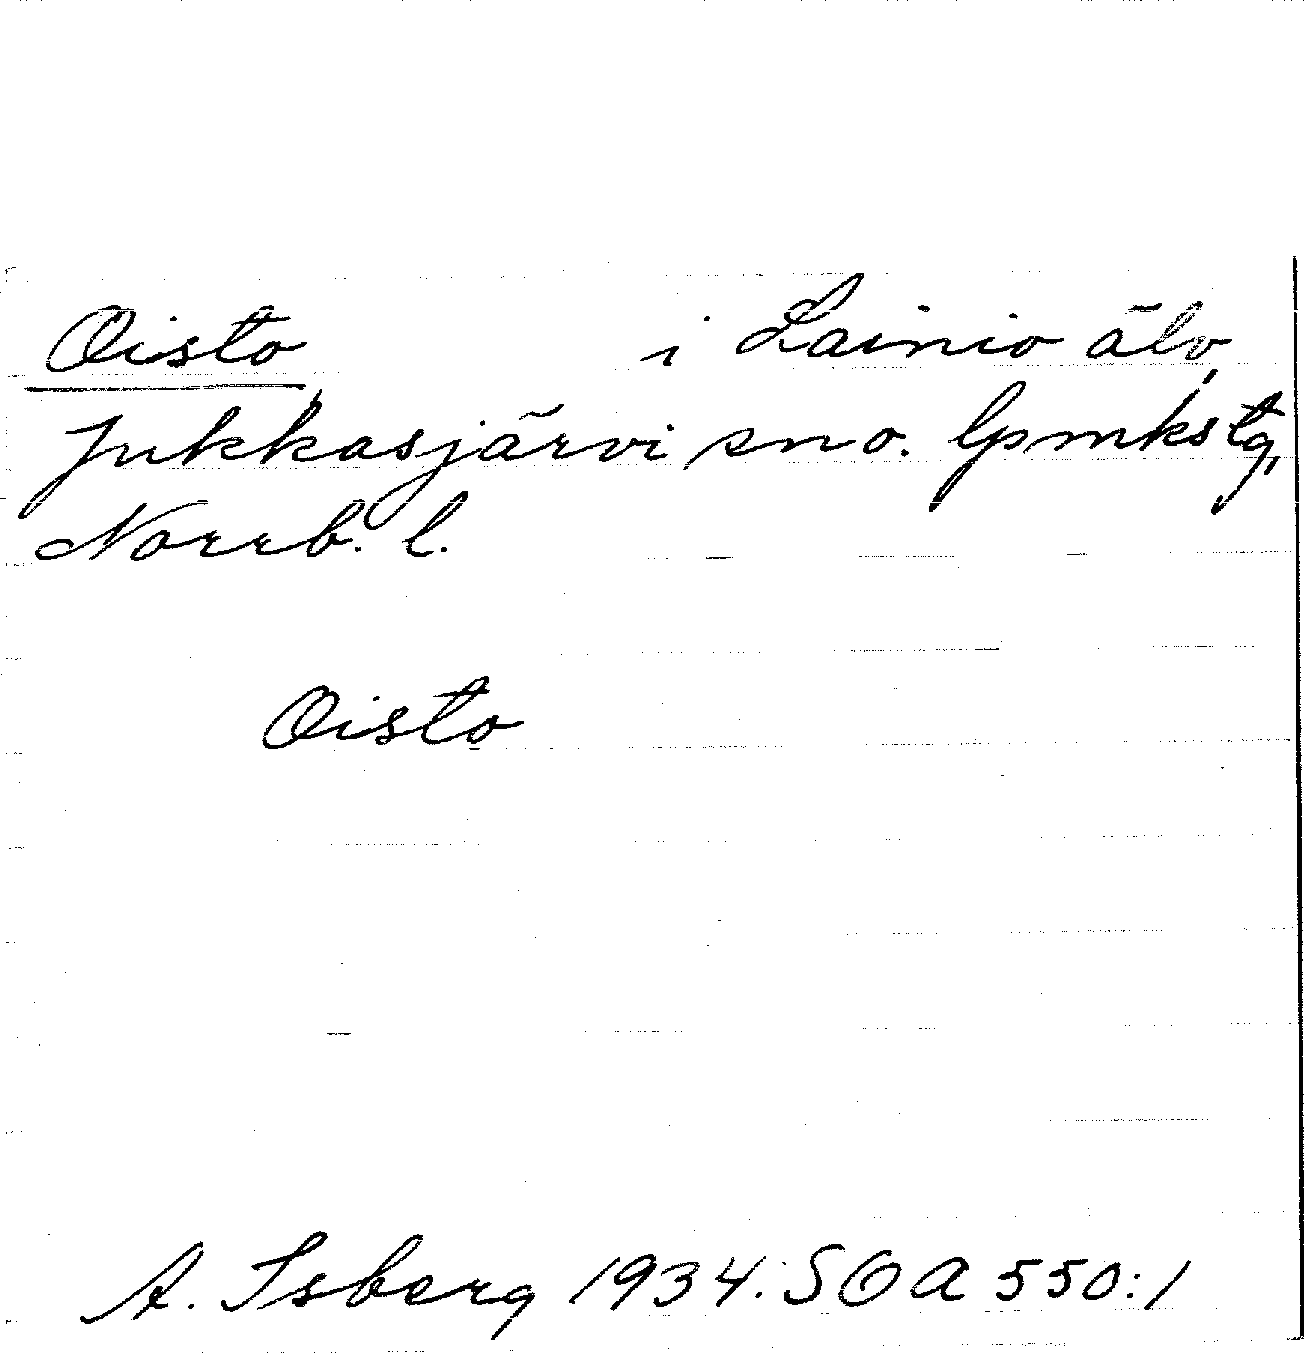 Oisto i Lainio älv,
Jukkasjärvi sn o. lpmkstg,
Norrb. l.
Oisto
A. Isberg 1934. SOA 550:1